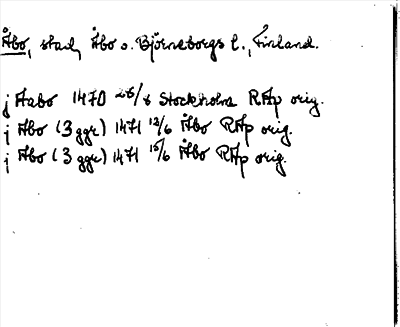 Åbo, stad, Åbo o. Björneborgs l., Finland.
j Aabo 1470 26/8 Stockholm RAp orig.
j Åbo (3 ggr) 1471 12/6 Åbo RAp orig.
j Åbo (3 ggr) 1471 15/6 Åbo RAp orig.